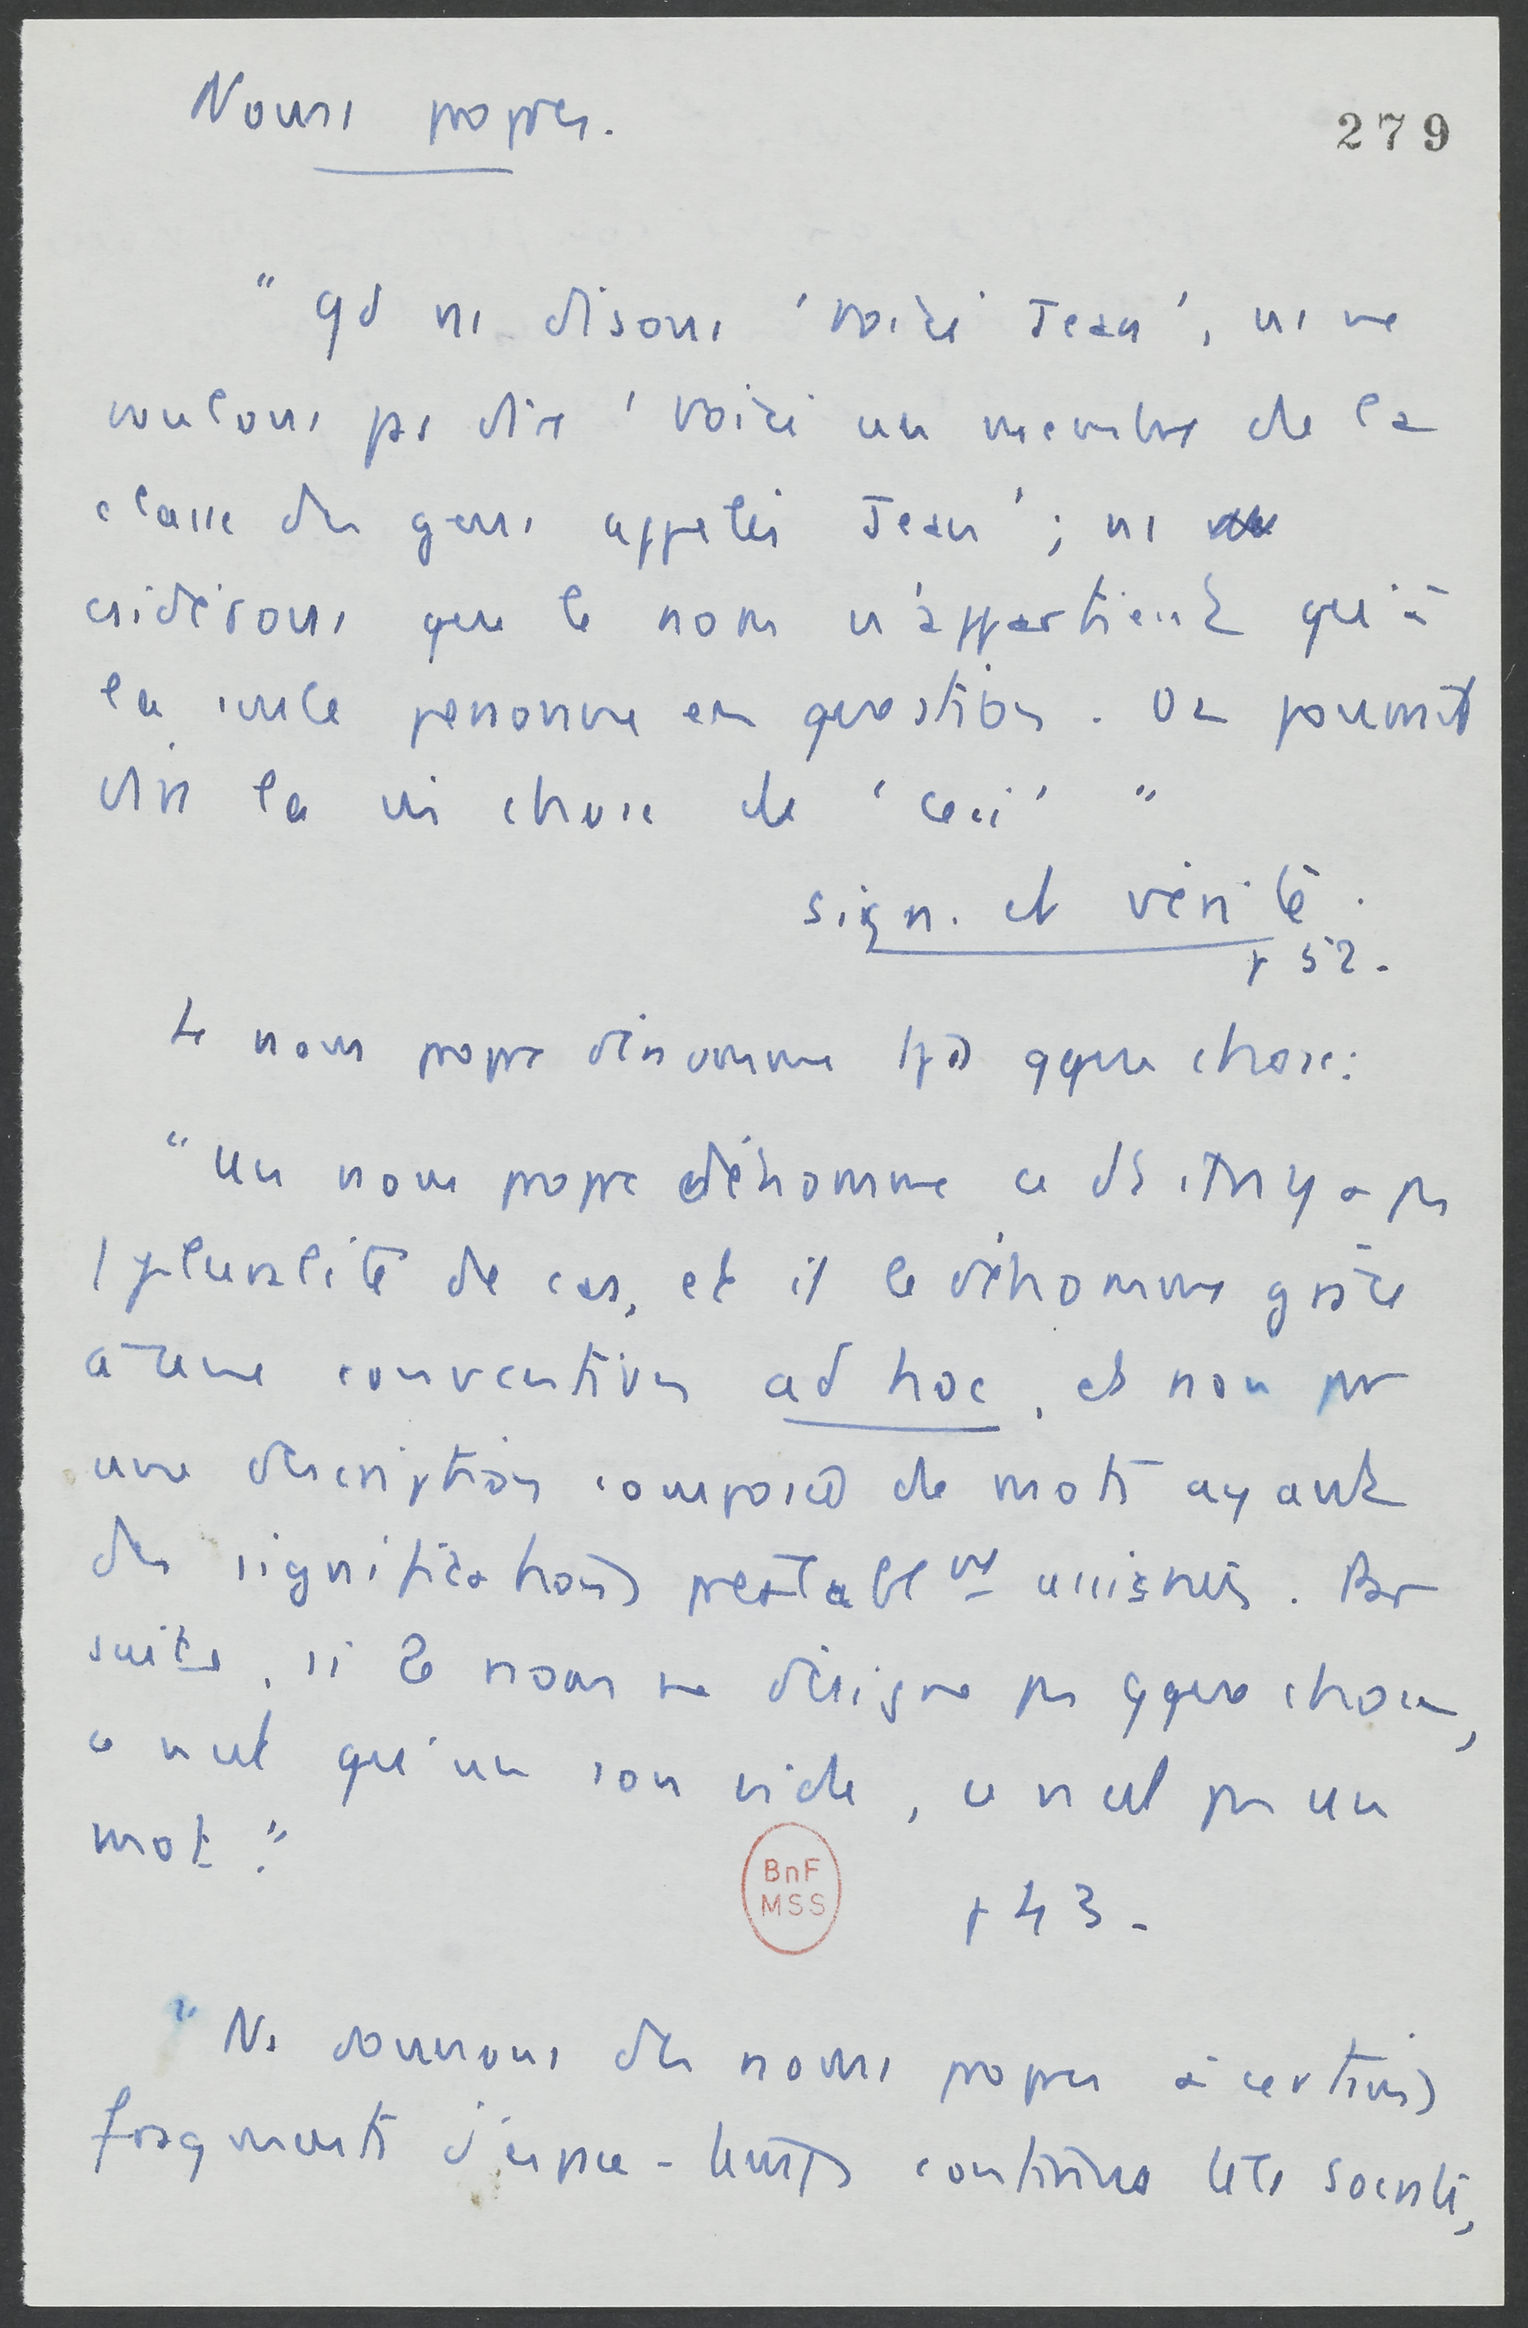 Noms propres.
279
"Qd ns disons 'voici Jean', ns ne
voulons pas dire 'voici un membre de la
classe des gens appelés Jean'; ns
csidérons que le nom n'appartient qu'à
la seule personne en question. On pourrait
dire la m chose de 'ceci' "
Sign. et vérité.
p 52.
Le nom propre dénomme tjs qque chose:
"Un nom propre dénomme ce ds il n'y a pas
1 pluralité de cas, et il le dénomme grâce
à une convention ad hoc, et non par
une description composée de mots ayant
des significations préalablemt assignées. Par
suite, si le nom ne désigne pas qque chose,
ce n'est qu'un son vide, ce n'est pas un
mot."
BnF
MSS
p 43.
"Ns donnons des noms propres à certains
fragments d'espace-temps continus tels Socrate,